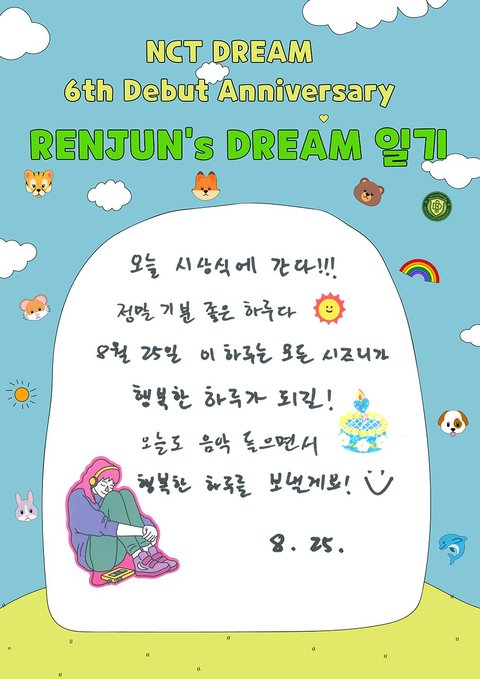 NCT DREAM
6th Debut Anniversary
RENJUN's DREAM 일기
오늘 시상식에 간다!!!
정말 기분 좋은 하루다
8월 25일 이 하루는 모든 시즈니가
행복한 하루가 되길!
오늘도 음악 들으면서
행복한 하루를 보낼게요!
8. 25.